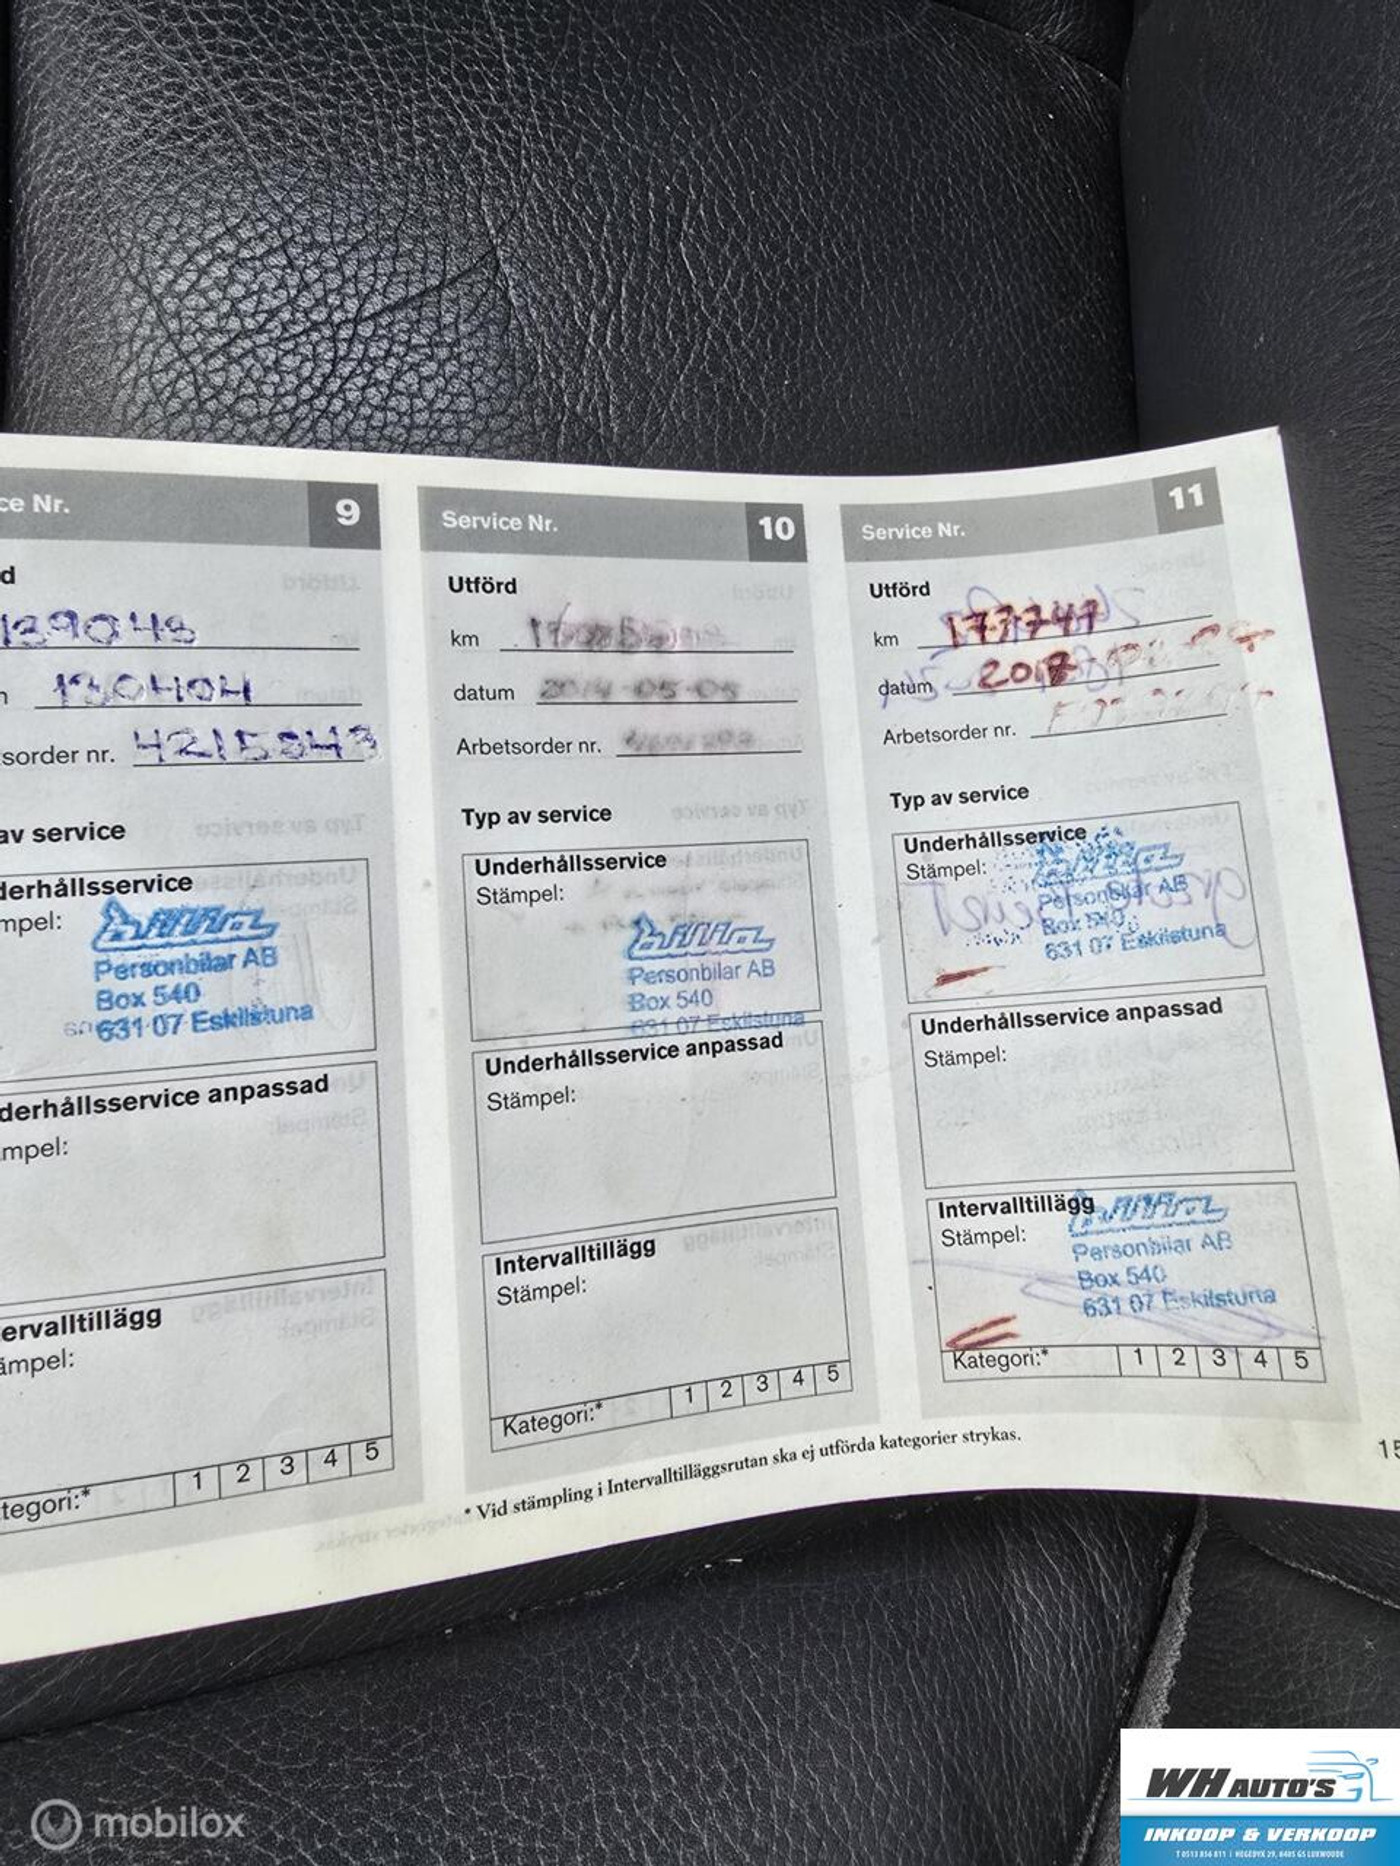 ce Nr. 9
d
139048
130404
sorder nr. 4215843
av service
derhållsservice
mpel:
bilia
Personbilar AB
Box 540
631 07 Eskilstuna
derhållsservice anpassad
mpel:
ervalltillägg
ämpel:
tegori:* 1 2 3 4 5
Service Nr. 10
Utförd
km
datum 2014-05-05
Arbetsorder nr.
Typ av service
Underhållsservice
Stämpel:
bilia
Personbilar AB
Box 540
631 07 Eskilstuna
Underhållsservice anpassad
Stämpel:
Intervalltillägg
Stämpel:
Kategori:* 1 2 3 4 5
Service Nr. 11
Utförd
km 177747
datum 2017
Arbetsorder nr.
Typ av service
Underhållsservice
Stämpel:
bilia
Personbilar AB
Box 540
631 07 Eskilstuna
Underhållsservice anpassad
Stämpel:
Intervalltillägg
Stämpel:
bilia
Personbilar AB
Box 540
631 07 Eskilstuna
Kategori:* 1 2 3 4 5
* Vid stämpling i Intervalltilläggsrutan ska ej utförda kategorier strykas.
15
mobilox
WH AUTO'S
INKOOP & VERKOOP
T 0513 856 811 | HEGEDYK 29, 8405 GS LUXWOUDE